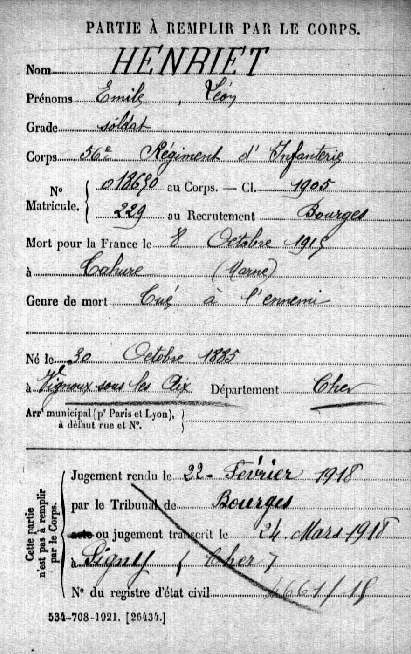 PARTIE À REMPLIR PAR LE CORPS.
Nom HENRIET
Prénoms Emile, Léon
Grade soldat
Corps 56e Régiment d'Infanterie
N° Matricule. { 018690 au Corps. — Cl. 1905
229 au Recrutement Bourges
Mort pour la France le 8 Octobre 1915
à Tahure (Marne)
Genre de mort Tué à l'ennemi
Né le 30 Octobre 1885
à Vignoux sous les Aix Département Cher
Arr<sup>t</sup> municipal (p<sup>r</sup> Paris et Lyon), à défaut rue et N°.
Cette partie n'est pas à remplir par le Corps.
Jugement rendu le 22 Février 1918
par le Tribunal de Bourges
acte ou jugement transcrit le 24 Mars 1918
à (Cher)
N° du registre d'état civil
534-708-1921. [26434.]